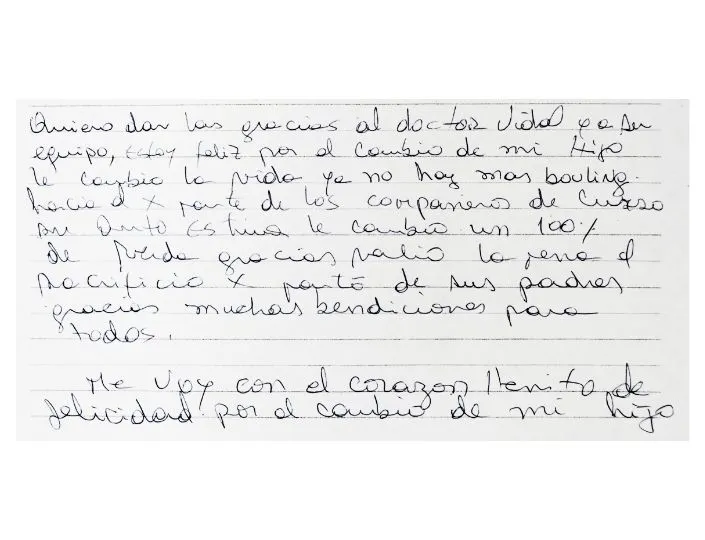 Quiero dar las gracias al doctor Vidal y a su
equipo, Estoy feliz por el cambio de mi Hijo
le cambio la vida ya no hay mas bouling.
hacia el x parte de los compañeros de Curso
su Auto Estima le cambio un 100%
de vida gracias valio la pena el
sacrificio x parte de sus padres
gracias muchas bendiciones para
todos.
Me Voy con el corazon llenito de
felicidad por el cambio de mi hijo